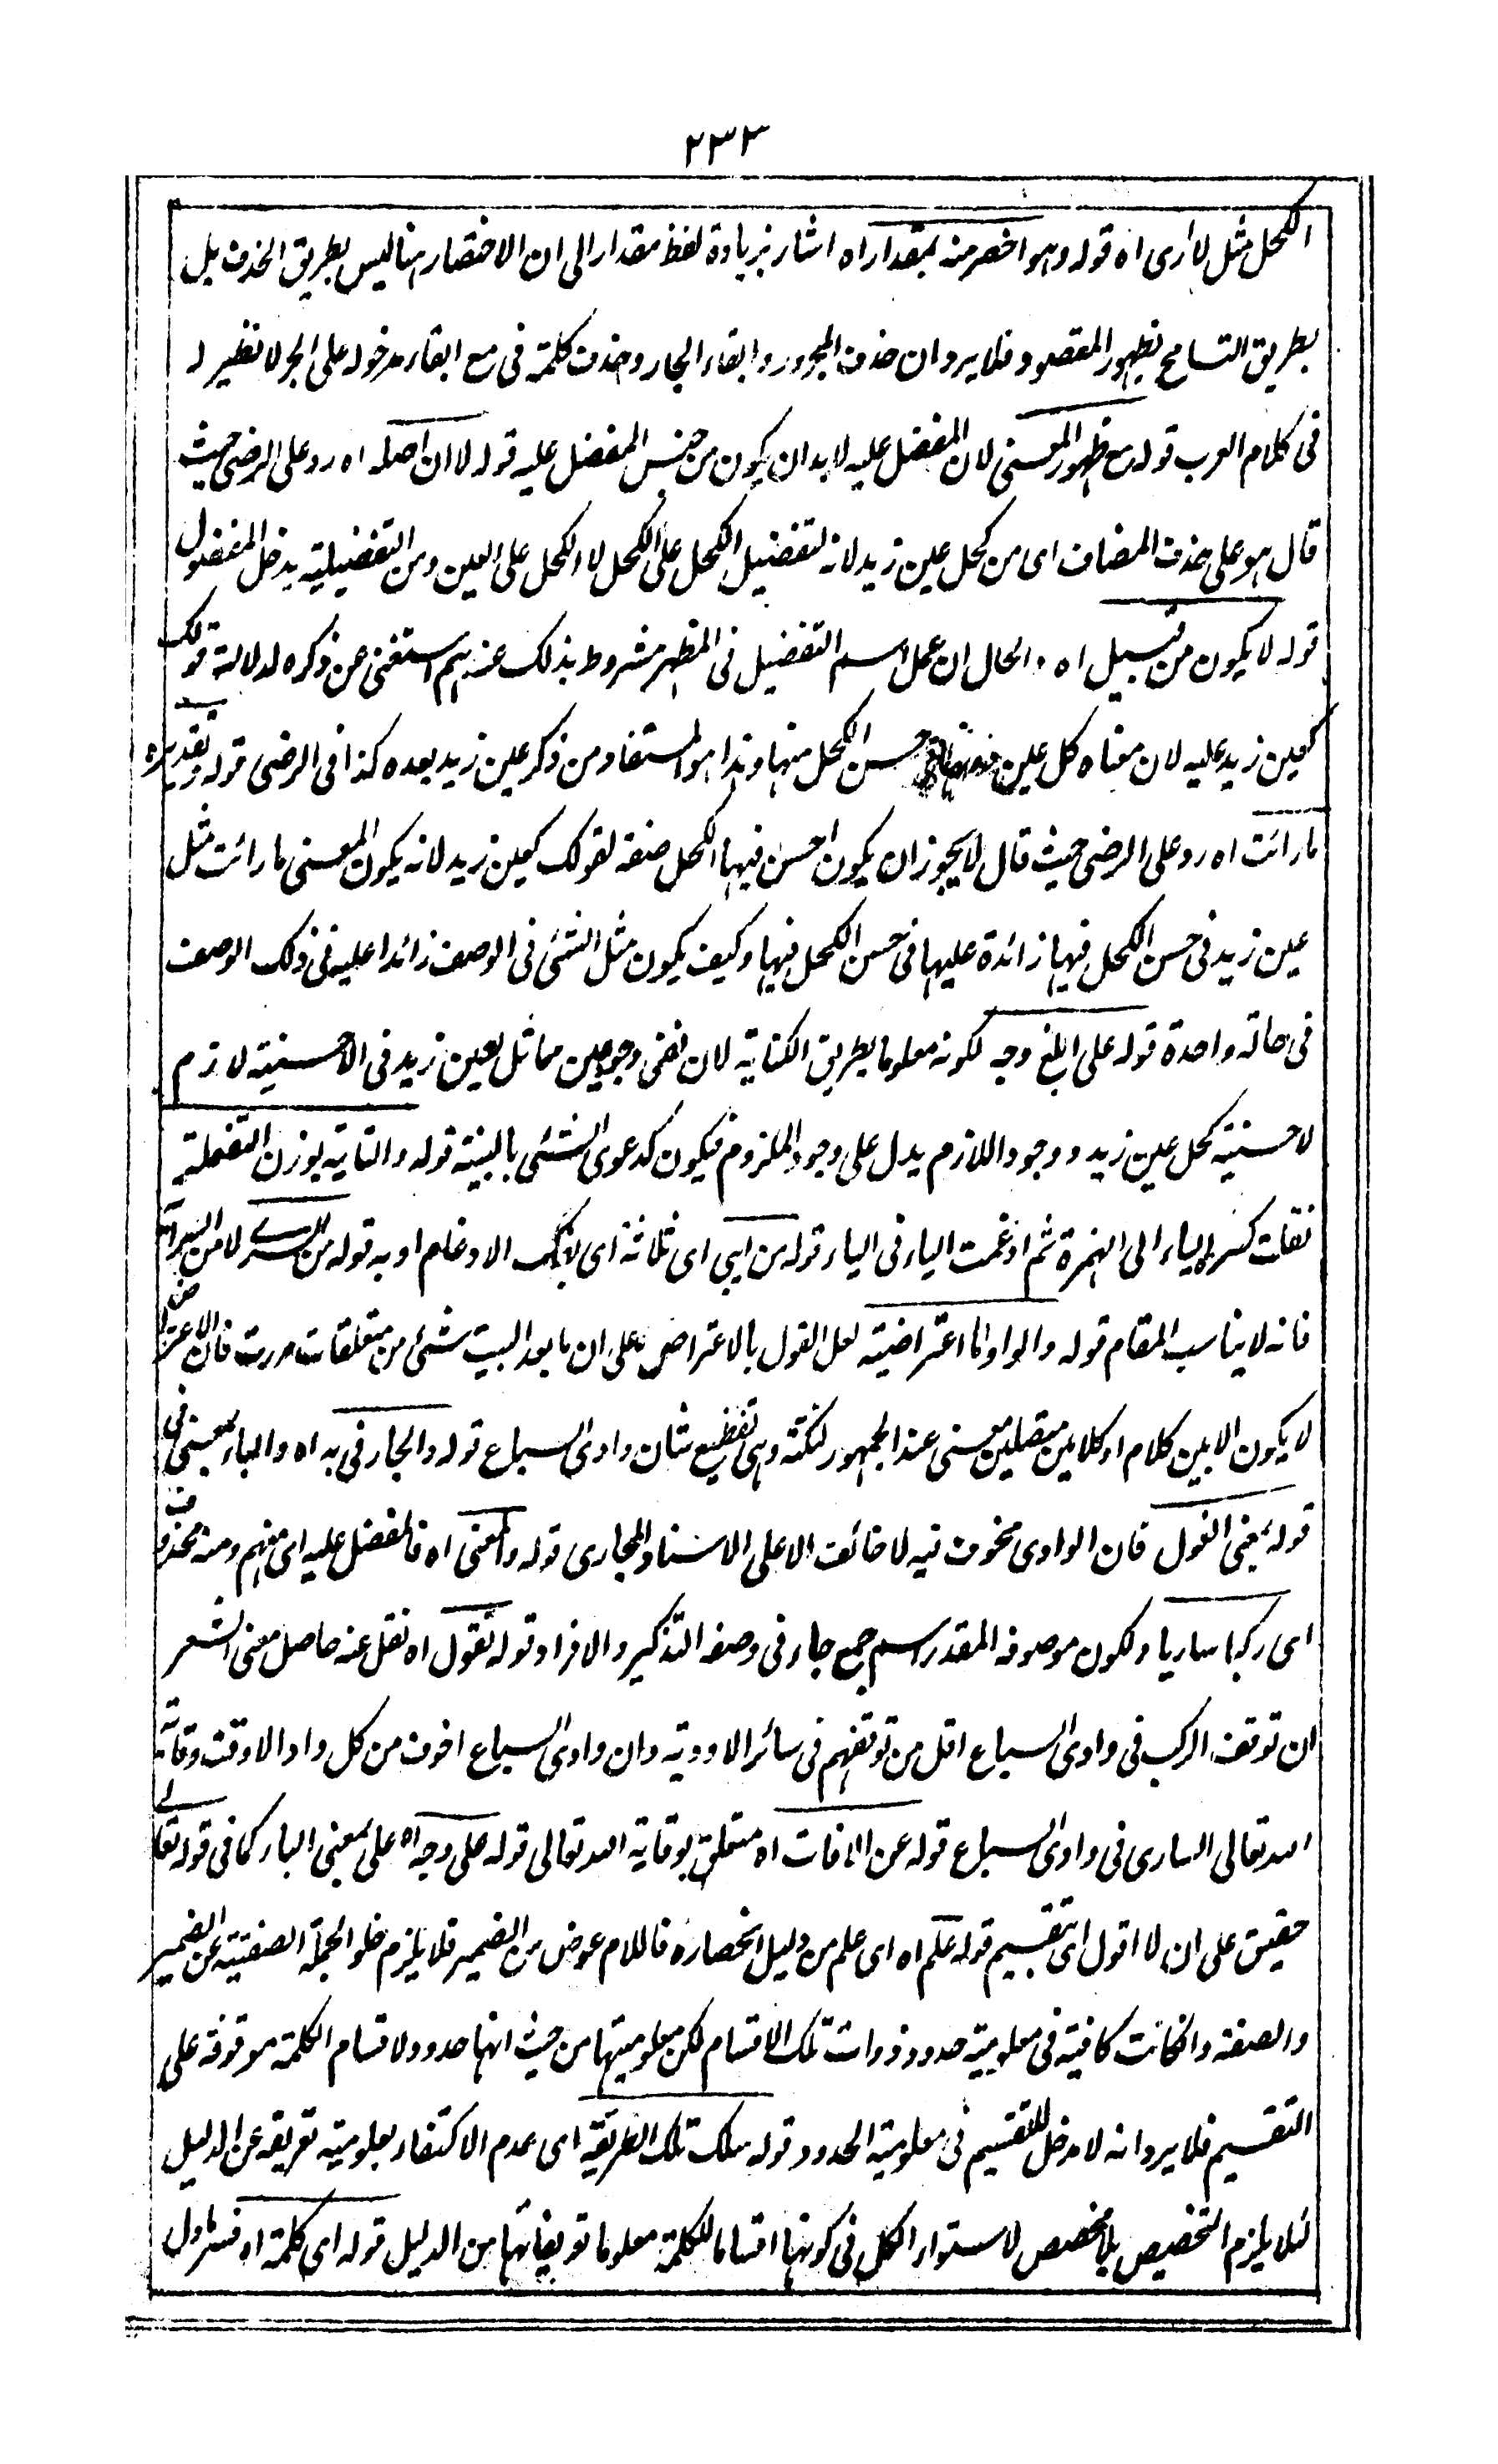 ٢٣٣
الكحل مثل لا ارى اه قوله وهو اخصر منه بمقدار اه اشار بزيادة لفظ مقدار الى ان الاختصار هنا ليس بطريق الحذف بل
بطريق التسامح لظهور المقصود فلا يرد ان حذف المجرور وابقاء الجار وحذف كلمة فى مع ابقاء مدخوله على الجر لا نظير له
فى كلام العرب قوله مع ظهور المعنى لان المفضل عليه لابد ان يكون من جنس المفضل عليه قوله لا ان اصله اه رد على الرضى حيث
قال هو على حذف المضاف اى من كحل عين زيد لانه لتفضيل الكحل على الكحل لا الكحل على العين ومن التفضيلية يدخل المفضول
قوله لا يكون من قبيل اه والحال ان عمل اسم التفضيل فى المظهر مشروط بذلك عندهم استغنى عن ذكره لدلالة قولك
كعين زيد عليه لان معناه كل عين حسن الكحل منها وهذا هو المستفاد من ذكر عين زيد بعده كذا فى الرضى قوله وتقديره
ما رائت اه رد على الرضى حيث قال لا يجوز ان يكون احسن فيها الكحل صفة لقولك كعين زيد لانه يكون المعنى ما رائت مثل
عين زيد فى حسن الكحل فيها زائدة عليها فى حسن الكحل فيها وكيف يكون مثل الشئ فى الوصف زائدا عليه فى ذلك الوصف
فى حالة واحدة قوله على ابلغ وجه لكونه معلوما بطريق الكناية لان نفى وجود عين مماثل لعين زيد فى الاحسنية لازم
لاحسنية كحل عين زيد ووجود اللازم يدل على وجود الملزوم فيكون كدعوى الشئى بالبينة قوله والتاية بوزن التفعلة
نقلت كسرة الياء الى الهمزة ثم ادغمت الياء فى الياء قوله من ايى اى ثلاثة اى بفك الادغام او به قوله من السرى لا من السراية
فانه لا يناسب المقام قوله والواو اما اعتراضية لعل القول بالاعتراض على ان ما بعد البيت شئى من متعلقات مررت فان الاعتراض
لا يكون الا بين كلام او كلامين متصلين معنى عند الجمهور لنكتة وهى تفظيع شان وادى السباع قوله والجار فى به اه والباء بمعنى فى
قوله بمعنى المفعول فان الوادى مخوف فيه لا خائف الا على الاسناد المجازى قوله والمعنى اه فالمفضل عليه اى منهم ومنه محذوف
اى ركبا ساريا ولكون موصوفه المقدر اسم جمع جاء فى وصفه التذكير والافراد قوله نقول اه نقل عنه حاصل معنى الشعر
ان توقف الركب فى وادى السباع اقل من توقفهم فى سائر الاودية وان وادى السباع اخوف من كل واد الا وقت وقاية
الله تعالى السارى فى وادى السباع قوله عن الافات اه متعلق بوقاية الله تعالى قوله على وجه اه على بمعنى الباء كما فى قوله تعالى
حقيق على ان لا اقول اى بتقسيم قوله علم اه اى علم من دليل انحصاره فاللام عوض من الضمير فلا يلزم خلو الجملة الصفتية عن الضمير
والصفة وانكانت كافية فى معلومية حدود ذوات تلك الاقسام لكن معلوميتها من حيث انها حدود لاقسام الكلمة موقوفة على
التقسيم فلا يرد انه لا مدخل للتقسيم فى معلومية الحدود قوله سلك تلك الطريقة اى عدم الاكتفاء بمعلومية تعريفه عن الدليل
لئلا يلزم التخصيص بلا مخصص لاستواء الكل فى كونها اقساما للكلمة معلوما تعريفاتها من الدليل قوله اى كلمة اه فسر ما ول